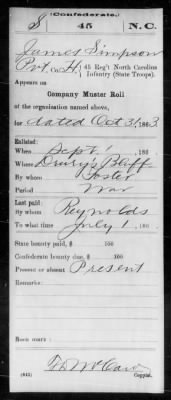 (Confederate.)
S 45 N.C.
James Simpson
Pvt, Co. H, 45 Reg't North Carolina
Infantry (State Troops)
Appears on
Company Muster Roll
of the organization named above,
for dated Oct 31, 1863.
Enlisted:
When Sept 1, 186 .
Where Drury's Bluff
By whom Foster
Period War
Last paid:
By whom Reynolds
To what time July 1, 186 .
State bounty paid, $ 100
Confederate bounty due, $ 100
Present or absent Present
Remarks:
Book mark:
(642) Copyist.